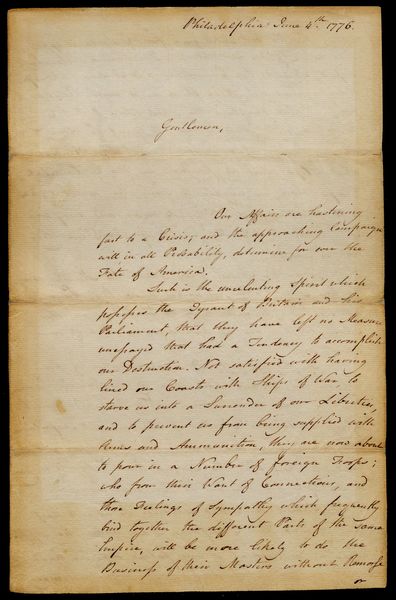 Philadelphia June 4th. 1776.
Gentlemen,
Our Affairs are hastening
fast to a Crisis; and the approaching Campaign
will in all Probability, determine for ever the
Fate of America.
Such is the unrelenting Spirit which
possesses the Tyrant of Britain and his
Parliament, that they have left no Measure
unessayed that had a Tendency to accomplish
our Destruction. Not satisfied with having
lined our Coasts with Ships of War, to
starve us into a Surrender of our Liberties,
and to prevent us from being supplied with
Arms and Ammunition, they are now about
to pour in a Number of foreign Troops;
who from their Want of Connections, and
those Feelings of Sympathy which frequently
bind together the different Parts of the same
Empire, will be more likely to do the
Business of their Masters without Remorse
or